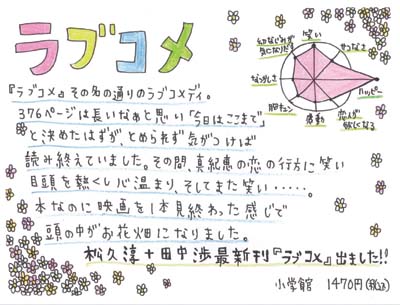 ラブコメ
笑い
せつなさ
ハッピー
恋人が欲しくなる
感動
胸キュン
なつかしさ
幼なじみが気になりだす
『ラブコメ』その名の通りのラブコメディ。
376ページは長いなぁと思い「今日はここまで」
と決めたはずが、とめられず気がつけば
読み終えていました。その間、真紀恵の恋の行方に笑い
目頭を熱くし心温まり、そしてまた笑い・・・・・。
本なのに映画を1本見終わった感じで
頭の中がお花畑になりました。
松久淳+田中渉最新刊『ラブコメ』出ました!!
小学館 1470円(税込)